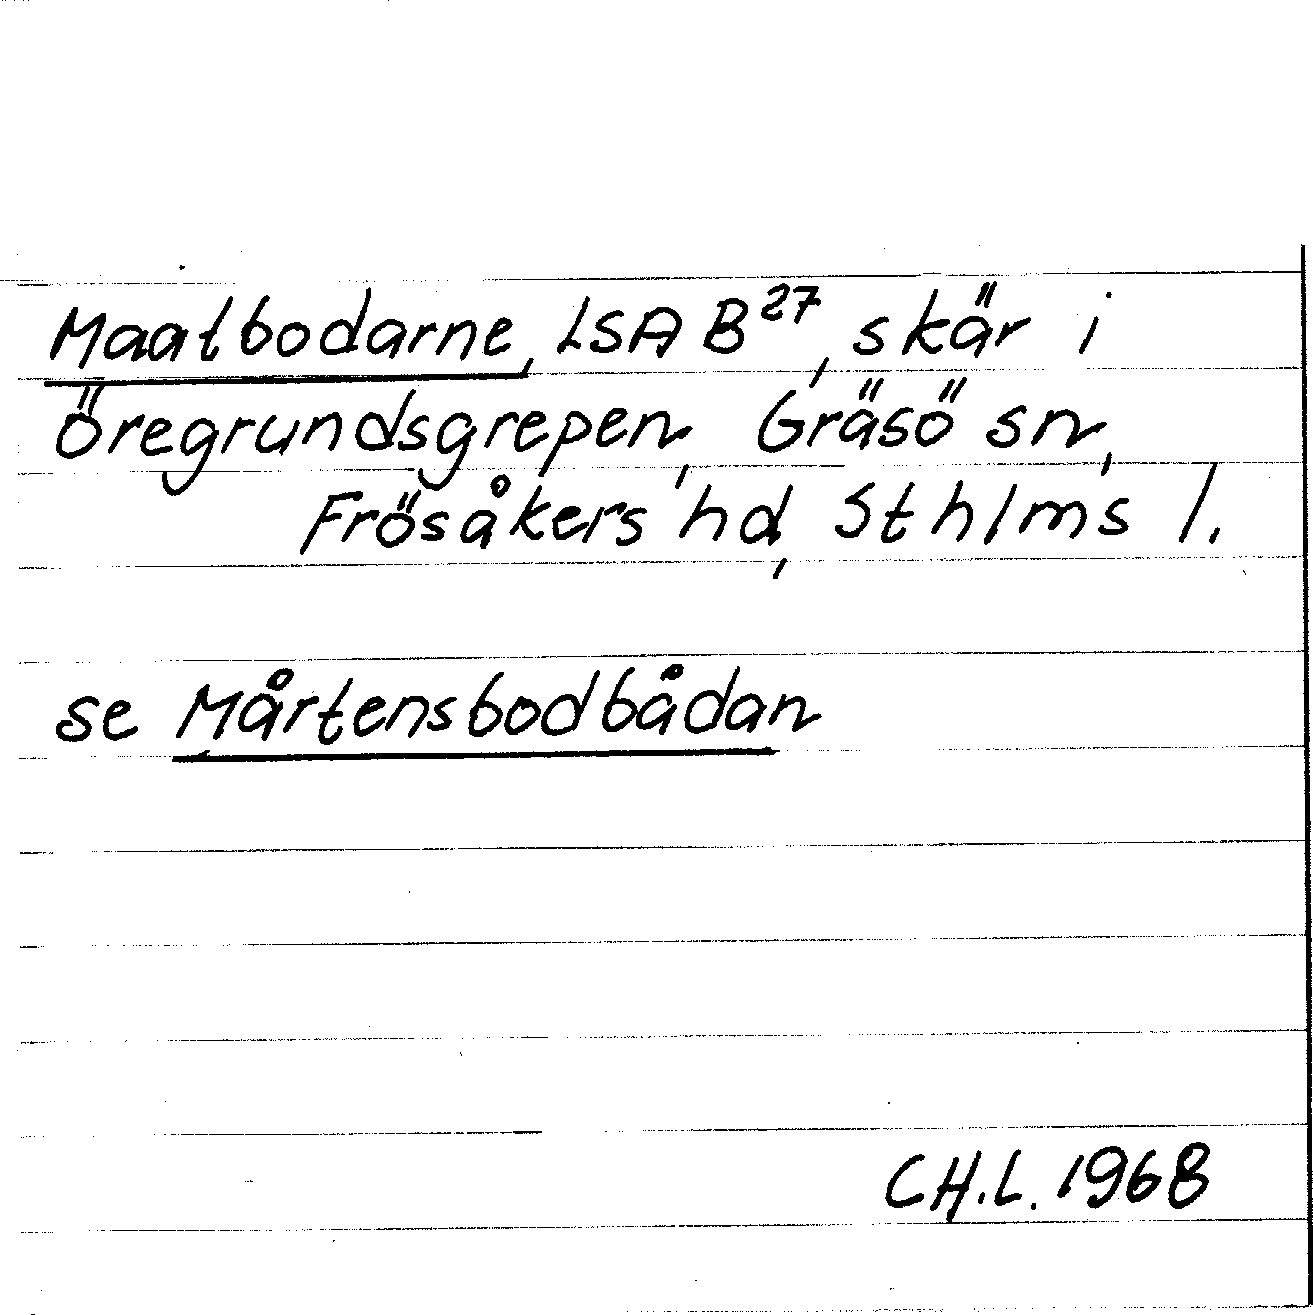 Maatbodarne, LSA B²⁷, skär i
Öregrundsgrepen, Gräsö sn,
Frösåkers hd, Sthlms l.
se Mårtensbodbådan
CH.L. 1968